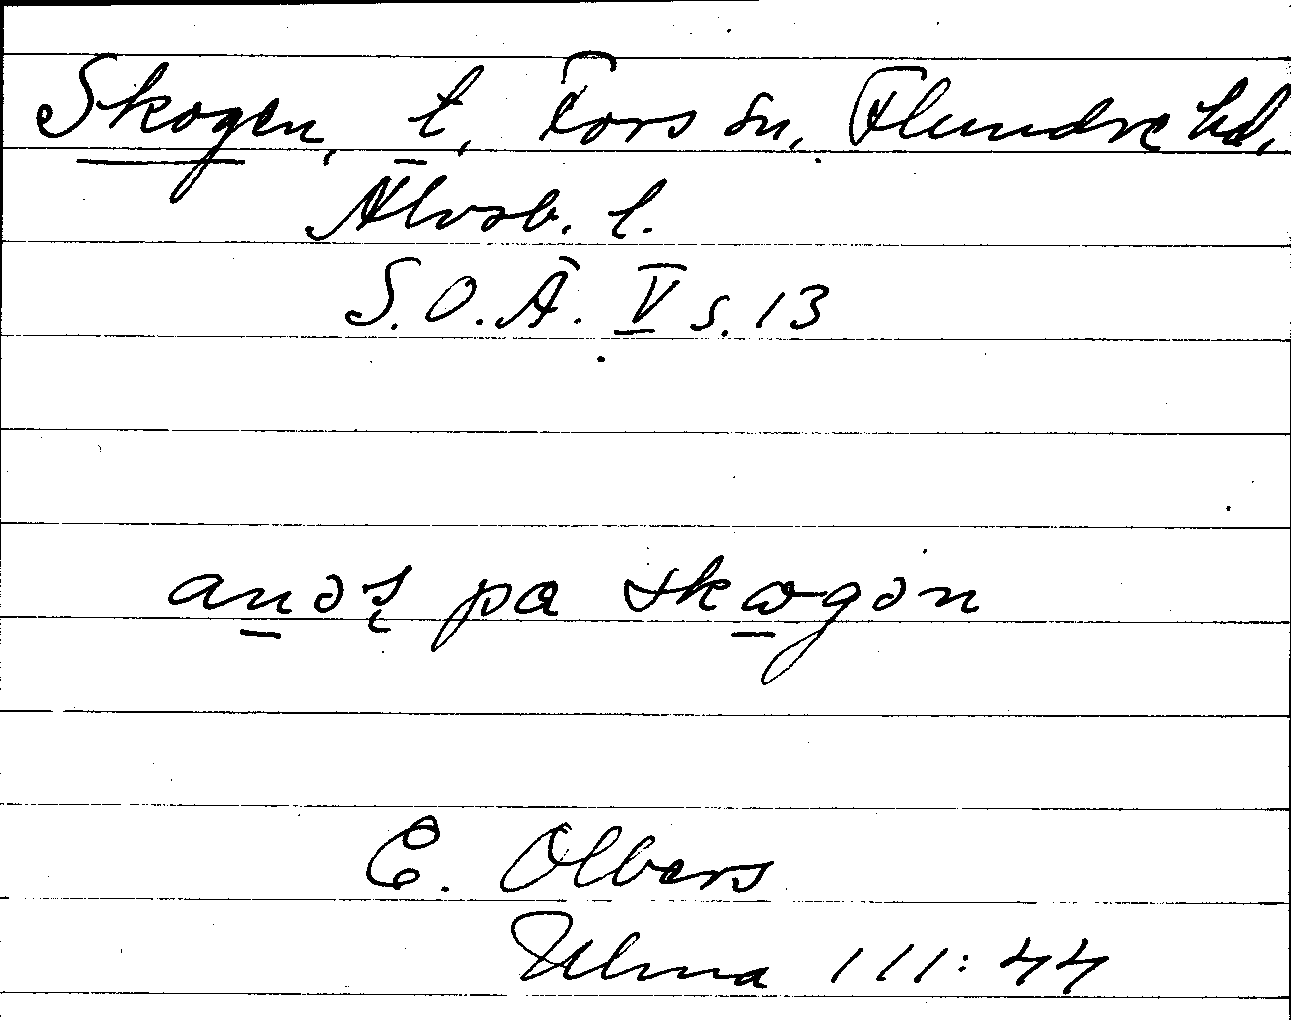 Skogen, t, Fors sn, Flundre hd,
Älvsb. l.
S.O.Ä. V s. 13
anəʂ pa skωgən
E. Olbers
Ulma 111:44